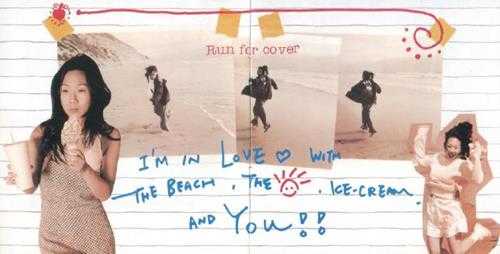 Run for cover
I'M IN LOVE ♡ WITH
THE BEACH, THE ☀, ICE-CREAM
AND YOU!!